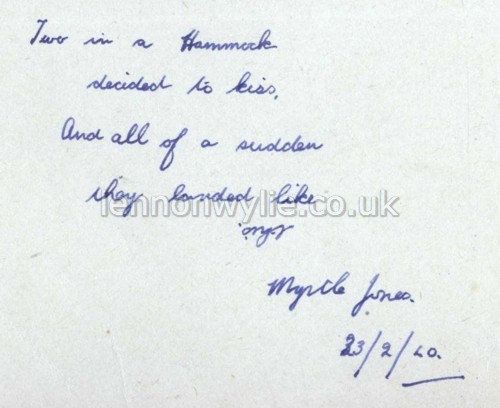 Two in a Hammock
decided to kiss,
And all of a sudden
they landed like
this.
Myrtle Jones.
23/2/40.
lennonwylie.co.uk